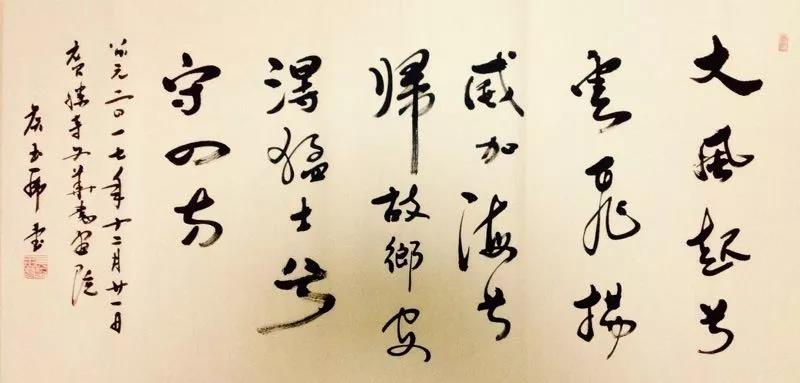 大風起兮
雲飛揚
威加海兮
歸故鄉安
得猛士兮
守四方
公元二〇一七年十二月廿一日
廣勝寺文華書畫院
玉書